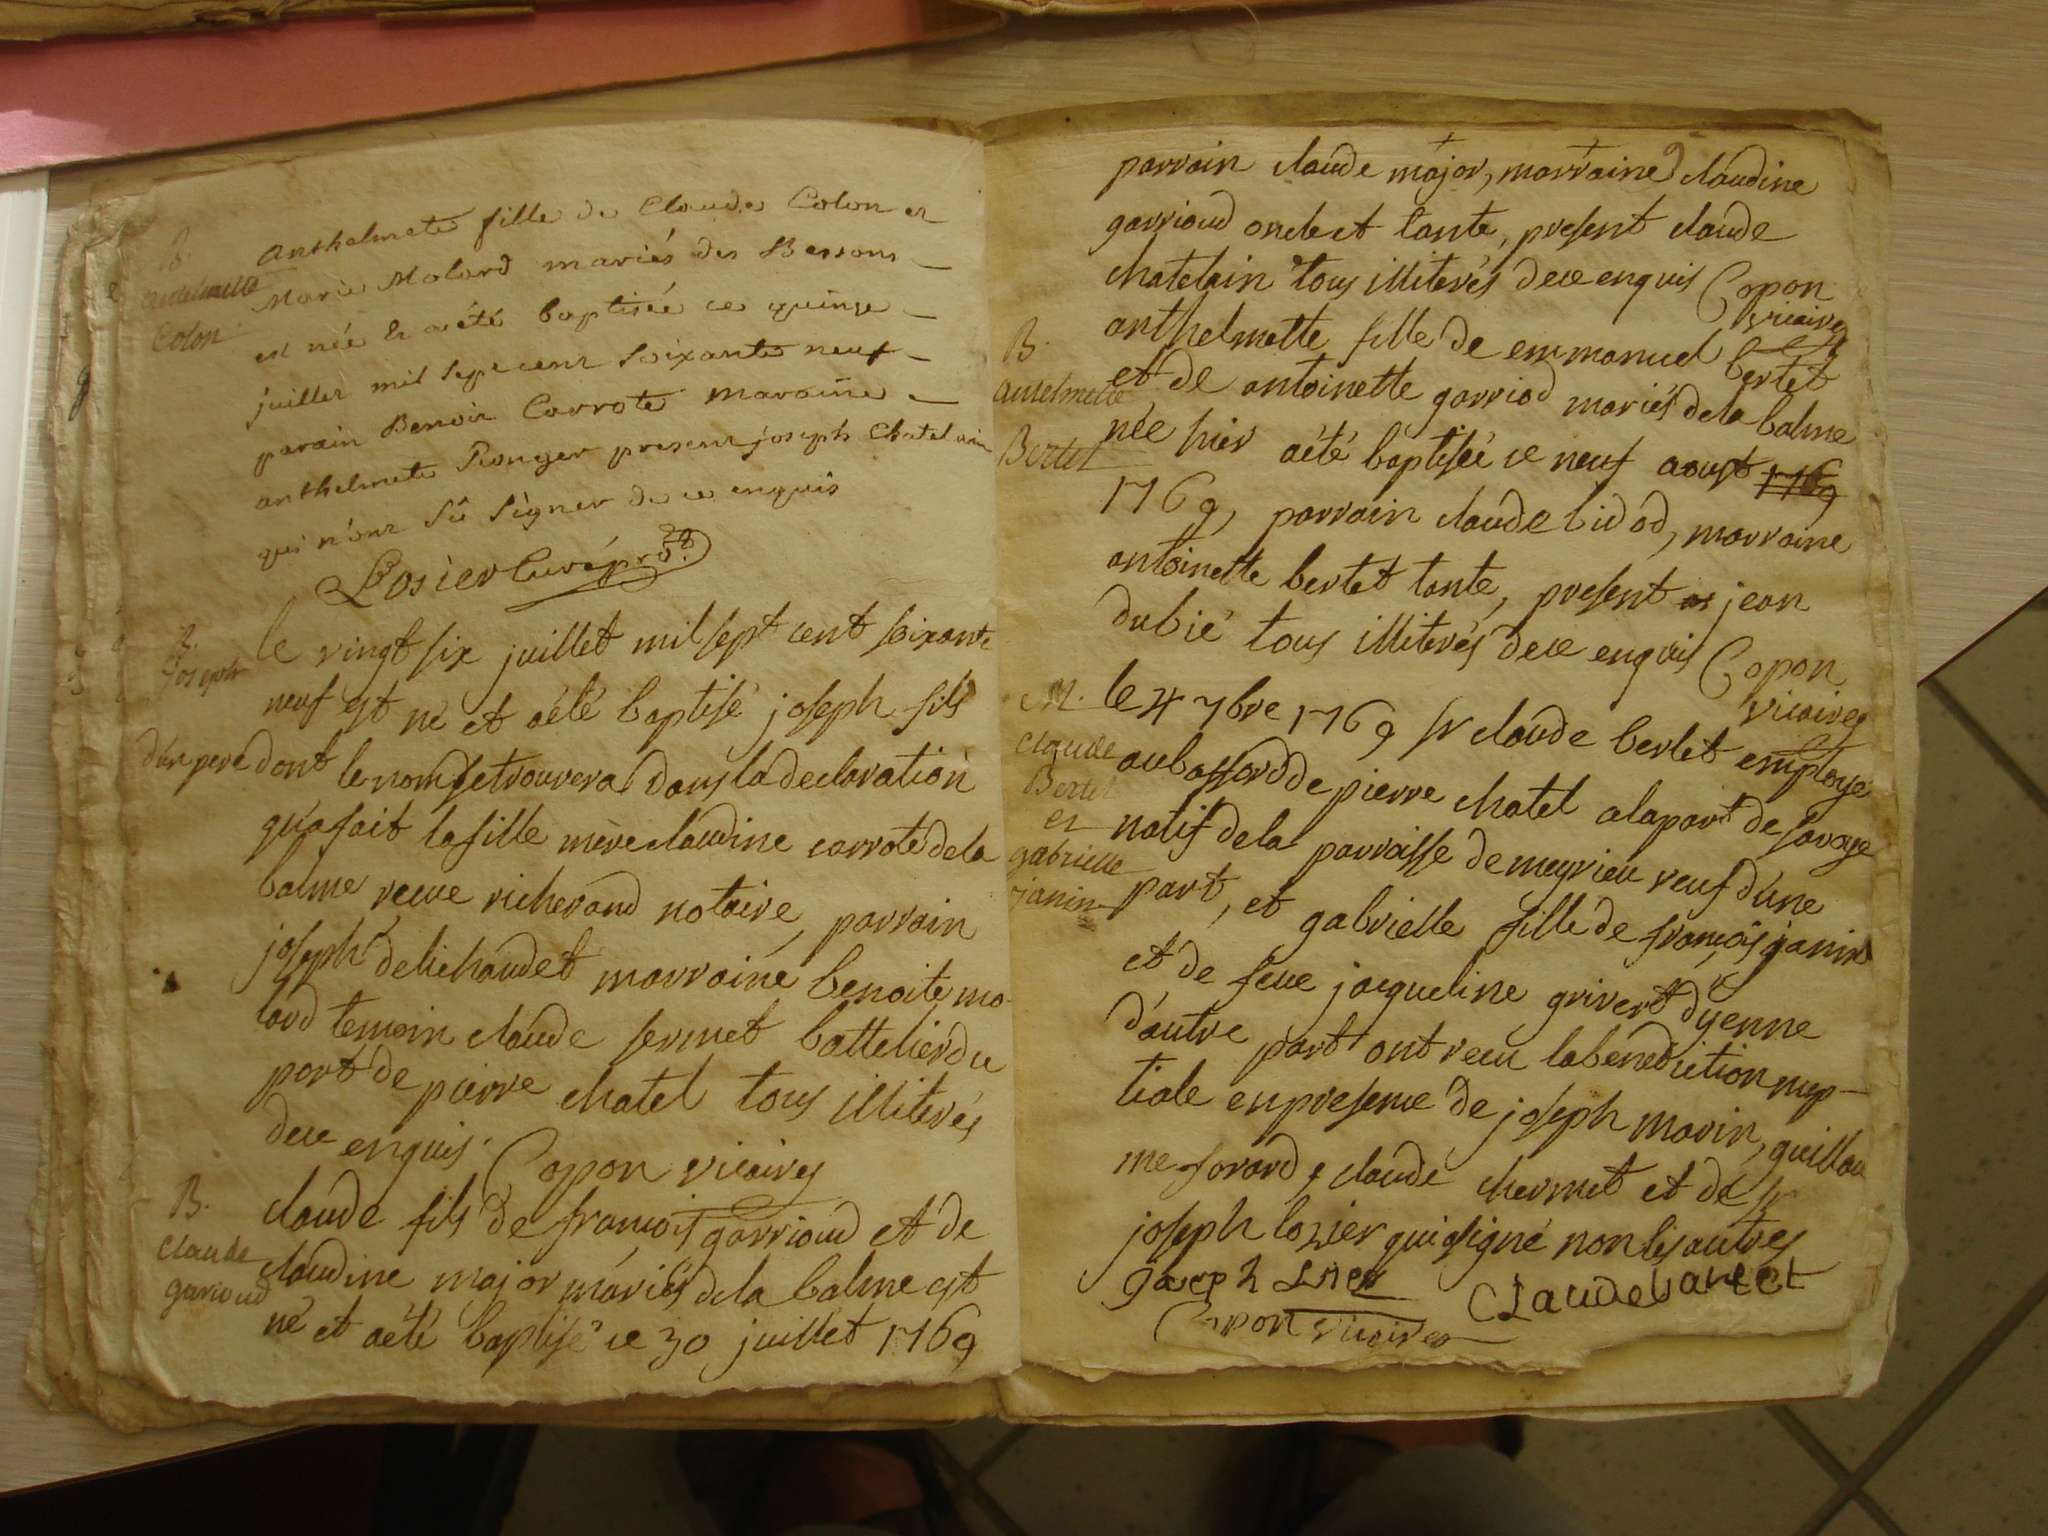 B.
antelmette
Colon
anthelmete fille de Claude Colon et
Marie Molard mariés des Bessons
est née et a été baptisée ce quinze
juillet mil sept cent soixante neuf
parain Benoit Carrote maraine
anthelmete Ronger present joseph Chatelain
qui n'ont sû signer de ce enquis
Losier Curé
B.
joseph
le vingt six juillet mil sept cent soixante
neuf est né et aété baptisé joseph fils
d'un pere dont le nom se trouvera dans la declaration
qu'a fait la fille mère claudine carrote dela
balme recue richerand notaire, parrain
joseph delichaudet marraine benoite mo-
lard temoin claude sermet battelier du
port de pierre chatel tous illiterés
dece enquis. Copon vicaire
B.
claude
garioud
claude fils de francois garrioud et de
claudine major mariés dela balme est
né et aété baptisé ce 30 juillet 1769
parrain claude major, marraine claudine
garrioud oncle et tante, present claude
chatelain tous illiterés dece enquis Copon
vicaire
B.
antelmette
Bertet
anthelmette fille de emmanuel bertet
et de antoinette garriod mariés dela balme
née hier aété baptisée ce neuf aoust 1769
1769, parrain claude bidod, marraine
antoinette bertet tante, present jean
dubié tous illiterés dece enquis Copon
vicaire
M.
claude
Bertet
et
gabrielle
janin
le 4 7bre 1769 sr claude bertet employé
au de pierre chatel alapart de savoye
natif dela parroisse de meyrieu veuf d'une
part, et gabrielle fille de françois janin
et de feue jacqueline grivert d'yenne
d'autre part ont recu la benediction nup-
tiale en presence de joseph marin, guillau
me forard, claude chermet et de sr
joseph lozier qui a signé non les autres
Claude
Copon vicaire